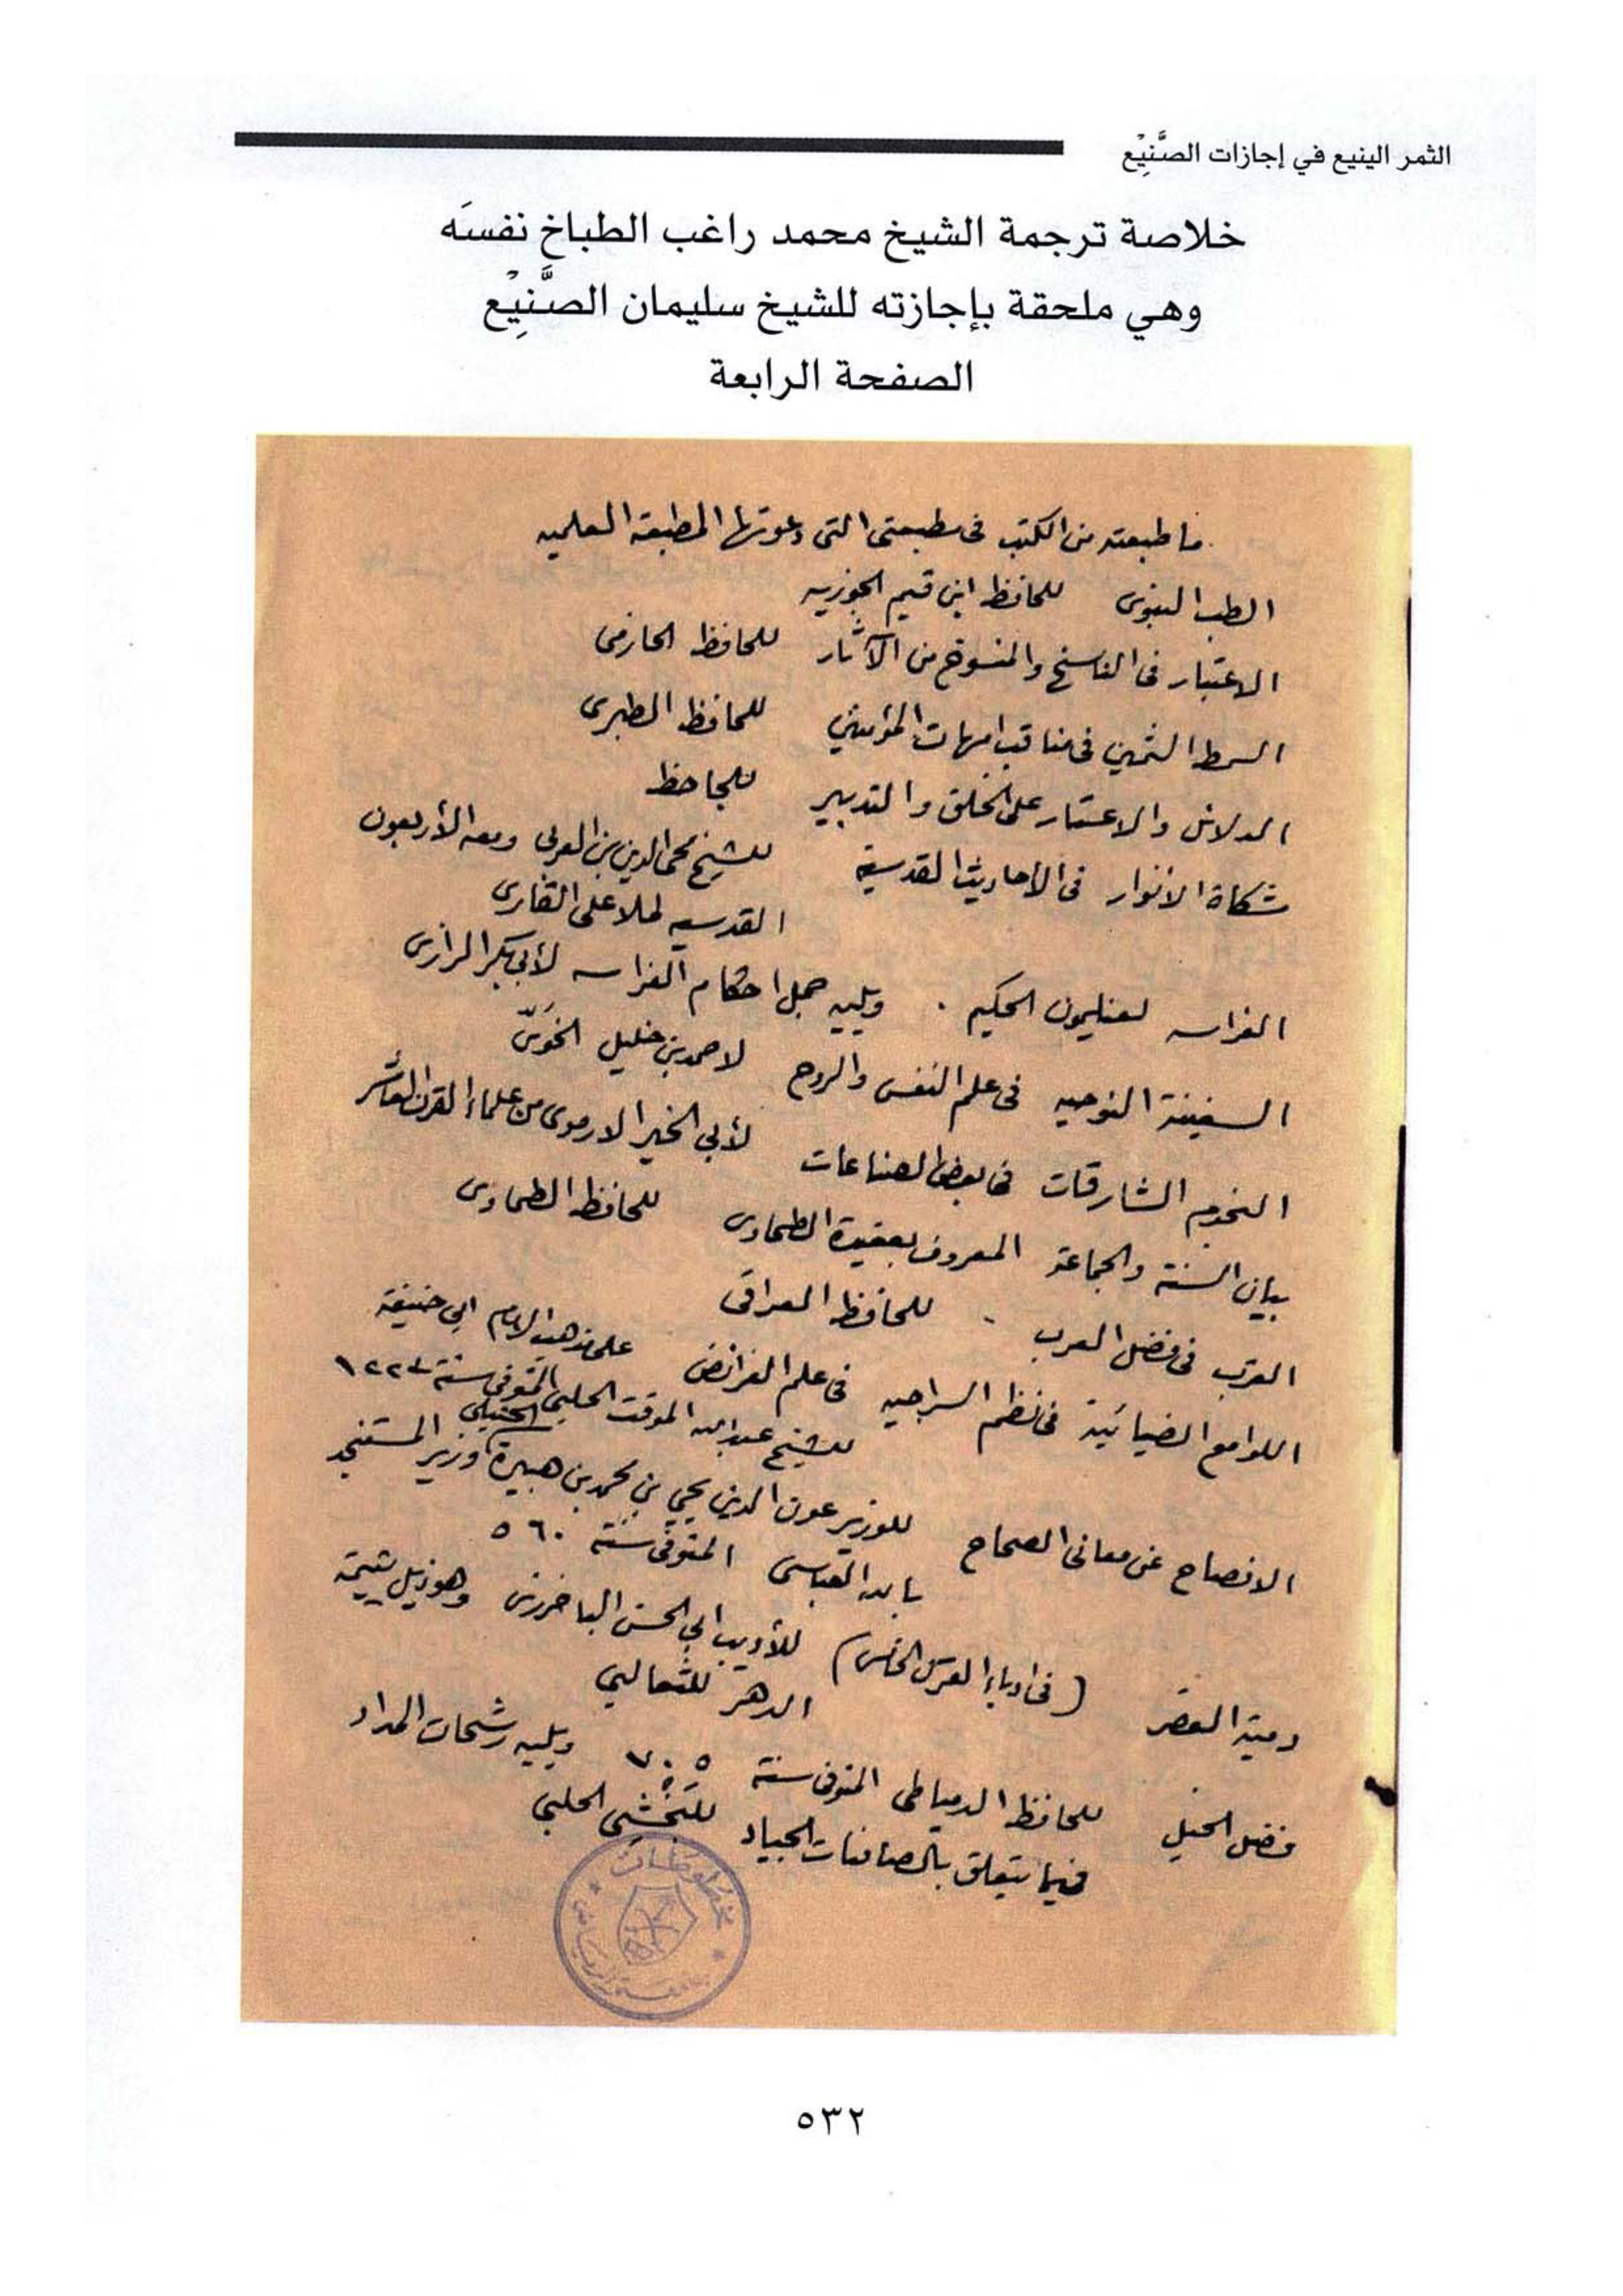 الثمر الينيع في إجازات الصَّنِيْع
خلاصة ترجمة الشيخ محمد راغب الطباخ نفسَه
وهي ملحقة بإجازته للشيخ سليمان الصَّنِيْع
الصفحة الرابعة
ما طبعته من الكتب فى مطبعتى التى دعوتها المطبعة العلميه
الطب النبوى للحافظ ابن قيم الجوزيه
الاعتبار فى الناسخ والمنسوخ من الآثار للحافظ الحازمى
السمط الثمين فى مناقب امهات المؤمنين للحافظ الطبرى
الدلائل والاعتبار على الخلق والتدبير للجاحظ
مشكاة الانوار فى الأحاديث القدسية للشيخ محى الدين بن العربى ومعه الأربعون
القدسيه لملا على القارى
الفراسه لفيليمون الحكيم . ويليه جمل احكام الفراسه لأبى بكر الرازى
السفينة النوحيه فى علم النفس والروح لاحمد بن خليل الخوَىّ
النجوم الشارقات فى بعض الصناعات لأبى الخير الارموى من علماء القرن العاشر
بيان السنة والجماعة المعروف بعقيدة الطحاوى للحافظ الطحاوى
القرب فى فضل العرب . للحافظ العراقى
اللوامع الضيائية فى نظم السراجيه فى علم الفرائض على مذهب الامام ابى حنيفة
للشيخ عبد الله الموقت الحلبى المتوفى سنة ١٢٢٣
الافصاح عن معانى الصحاح للوزير عون الدين يحيى بن محمد بن هبيرة الحنبلى وزير المستنجد
بالله العباسى المتوفى سنة ٥٦٠
دمية القصر (فى ادباء القرن الخامس) للأديب ابى الحسن الباخرزى وهو ذيل يتيمة
الدهر للثعالبى
فضل الخيل للحافظ الدمياطى المتوفى سنة ٧٠٥ ويليه رشحات المداد
فيما يتعلق بالصافنات الجياد للبخشى الحلبى
مخطوطات
٥٣٢